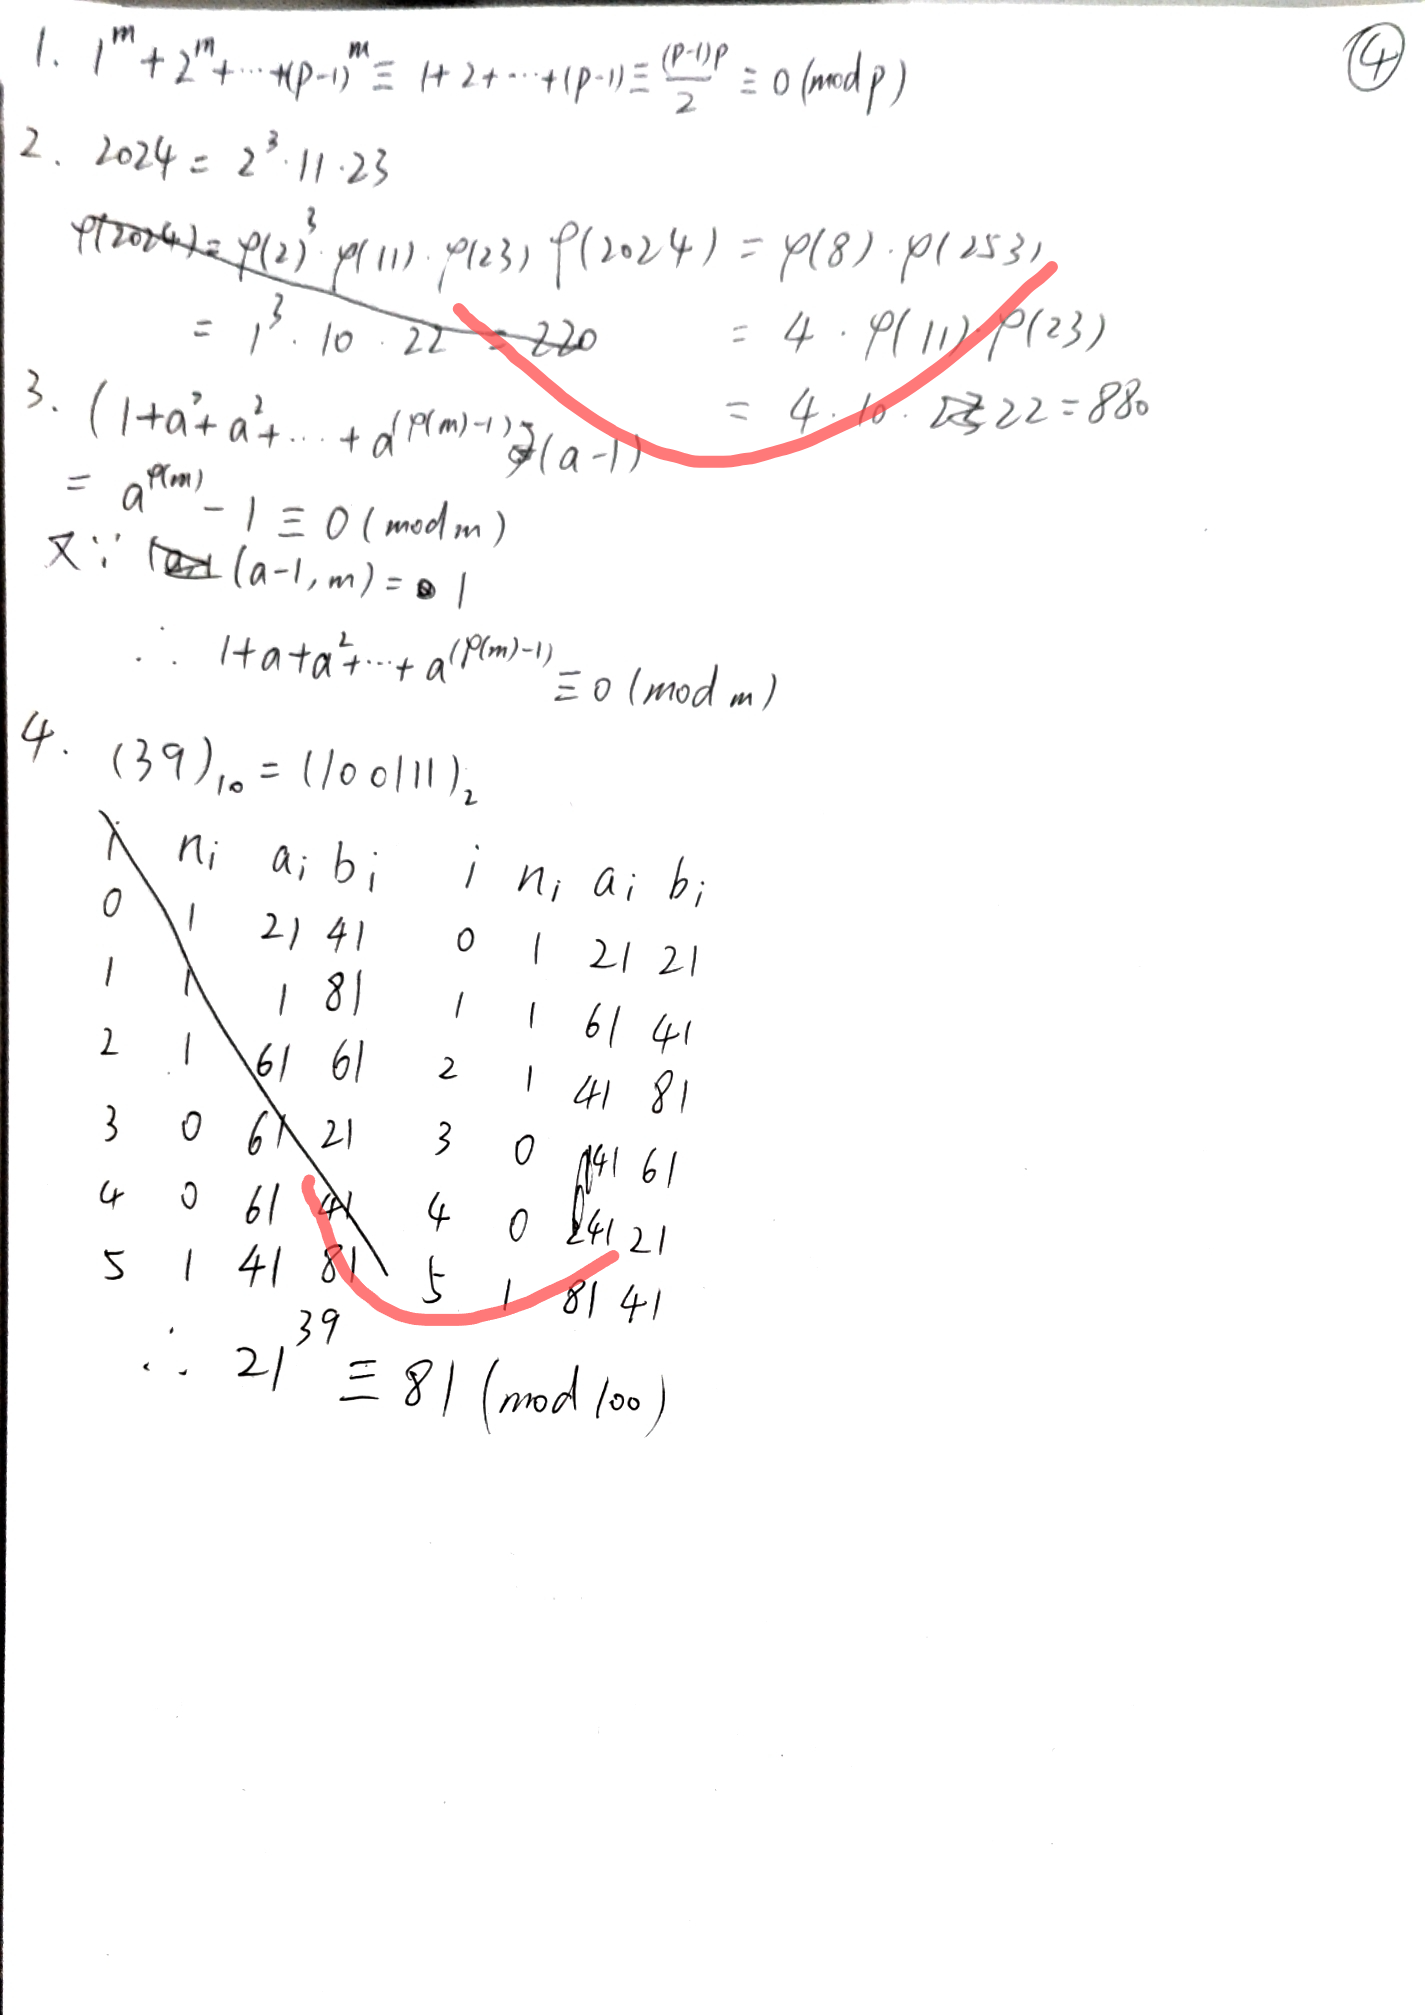 ④
1. 1^m + 2^m + ··· + (p-1)^m ≡ 1+2+···+(p-1) ≡ (p-1)p/2 ≡ 0 (mod p)
2. 2024 = 2^3·11·23
φ(2024) = φ(2)^3·φ(11)·φ(23)
= 1^3·10·22 = 220
φ(2024) = φ(8)·φ(253)
= 4·φ(11)·φ(23)
= 4·10·22 = 880
3. (1+a+a^2+···+a^(φ(m)-1))(a-1)
= a^φ(m) - 1 ≡ 0 (mod m)
又∵ (a-1, m) = 1
∴ 1+a+a^2+···+a^(φ(m)-1) ≡ 0 (mod m)
4. (39)_10 = (100111)_2
i n_i a_i b_i
0 1 21 41
1 1 1 81
2 1 61 61
3 0 61 21
4 0 61 41
5 1 41 81
i n_i a_i b_i
0 1 21 21
1 1 61 41
2 1 41 81
3 0 41 61
4 0 41 21
5 1 81 41
∴ 21^39 ≡ 81 (mod 100)